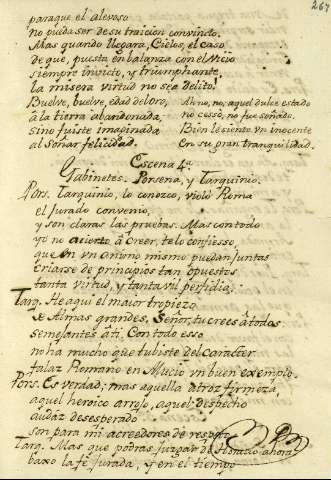 267
paraque el alevoso
No pueda ser de su traicion convicto.
Mas quando llegara, Cielos, el caso
de que, puesta en balanza con el Vicio
siempre invicto, y triumphante,
la misera virtud no sea Delito!
Buelve, buelve, edad del oro,
à la tierra abandonada,
sino fuiste imaginada
al soñar felicidad.
Ah no, no, aquel dulce estado
no cessò, no fue soñado.
Bien le siente un inocente
en su gran tranquilidad.
Escena 4ª
Gabinetes. Porsena, y Tarquinio.
Pors. Tarquinio, lo conozco, violò Roma
el jurado convenio,
y son claras las pruebas. Mas con todo
yo no acierto à creer, te lo confiesso,
que en un animo mismo puedan juntas
criarse de principios tan opuestos
tanta virtud, y tanta vil perfidia.
Tarq. He aqui el maior tropiezo
de Almas grandes, Señor, tu crees à todos
semejantes à ti. Con todo esso
no ha mucho que tubiste del caracter
falaz Romano en Mucio un buen exemplo.
Pors. Es verdad; mas aquella atroz firmeza,
aquel heroico arrojo, aquel despecho
audaz desesperado
son para mi acreedores de respeto.
Tarq. Mas que podras juzgar de Horacio ahora
baxo la fe jurada, y en el tiempo